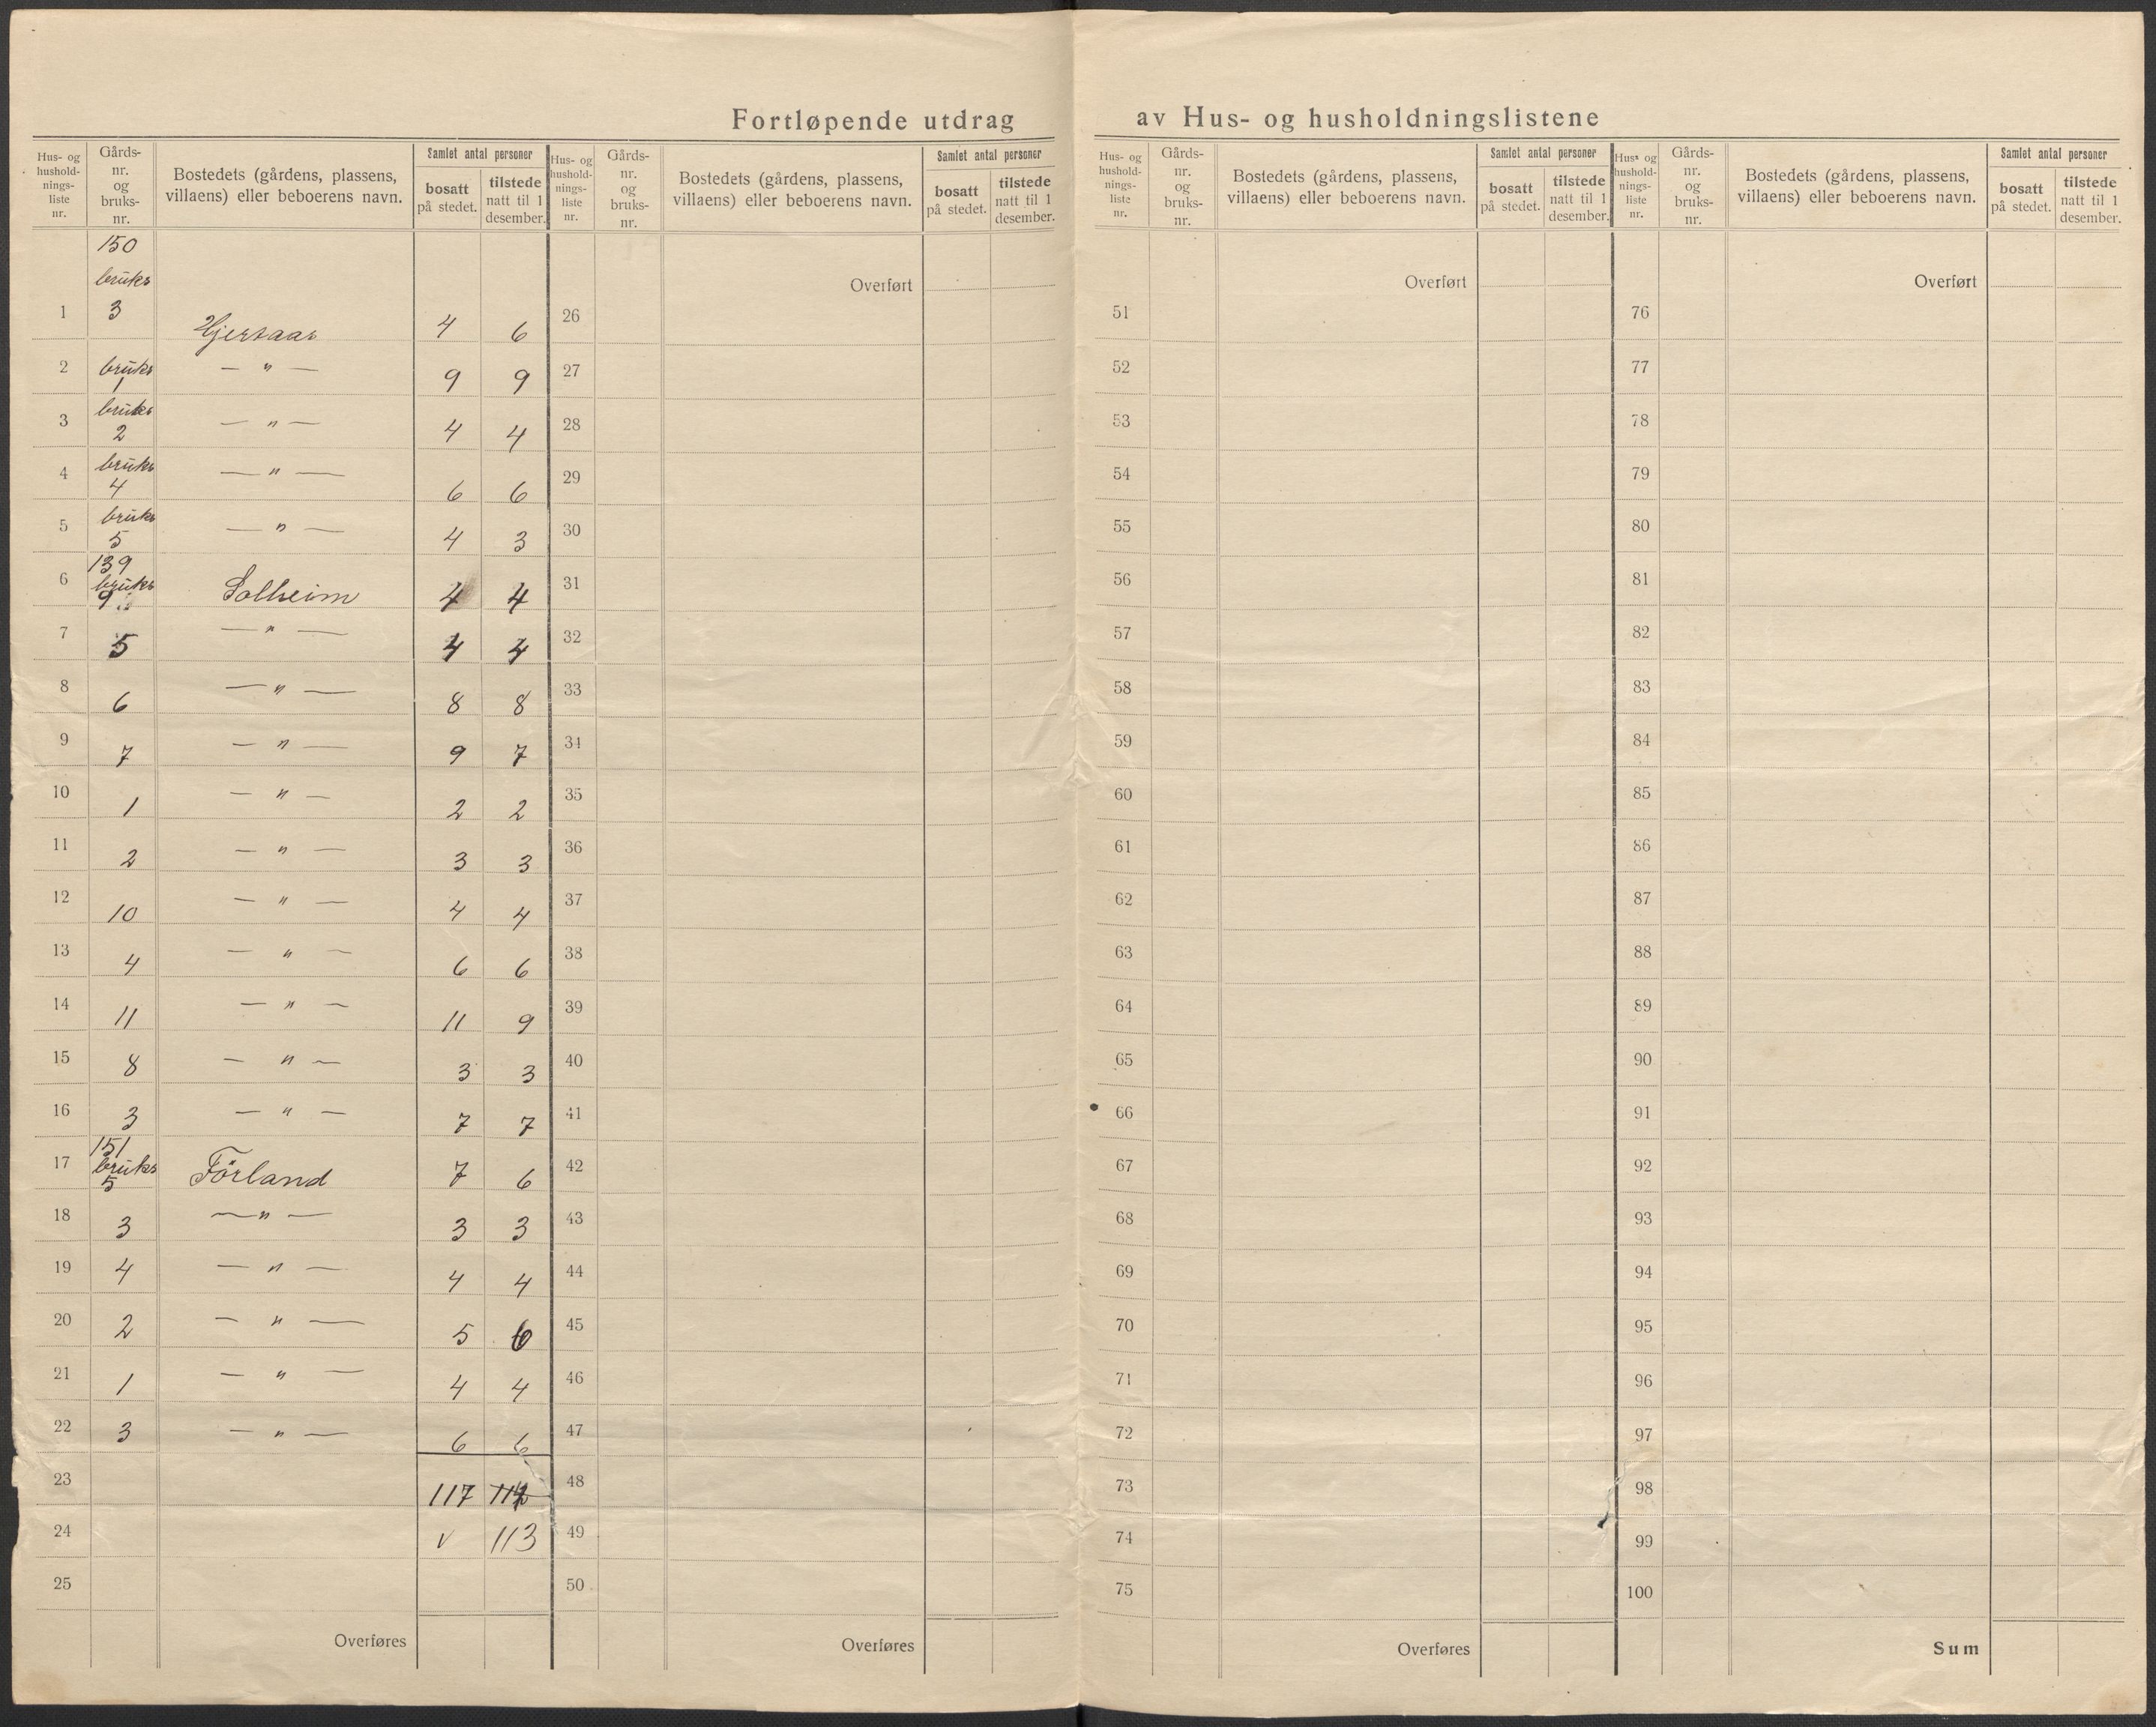 Fortløpende utdrag av Hus- og husholdningslistene
Hus- og hushold-nings-liste nr. Gårds-nr. og bruks-nr. Bostedets (gårdens, plassens, villaens) eller beboerens navn. Samlet antal personer bosatt på stedet. tilstede natt til 1 desember.
Hus- og hushold-nings-liste nr. Gårds-nr. og bruks-nr. Bostedets (gårdens, plassens, villaens) eller beboerens navn. Samlet antal personer bosatt på stedet. tilstede natt til 1 desember.
Hus- og hushold-nings-liste nr. Gårds-nr. og bruks-nr. Bostedets (gårdens, plassens, villaens) eller beboerens navn. Samlet antal personer bosatt på stedet. tilstede natt til 1 desember.
Hus- og hushold-nings-liste nr. Gårds-nr. og bruks-nr. Bostedets (gårdens, plassens, villaens) eller beboerens navn. Samlet antal personer bosatt på stedet. tilstede natt til 1 desember.
150
bruks Overført Overført Overført
1 3 Hjersaas 4 6 26 51 76
2 bruks 1 — " — 9 9 27 52 77
3 bruks 2 — " — 4 4 28 53 78
4 bruks 4 — " — 6 6 29 54 79
5 bruks 5 — " — 4 3 30 55 80
6 139 bruks 9 Solheim 4 4 31 56 81
7 5 — " — 4 4 32 57 82
8 6 — " — 8 8 33 58 83
9 7 — " — 9 7 34 59 84
10 1 — " — 2 2 35 60 85
11 2 — " — 3 3 36 61 86
12 10 — " — 4 4 37 62 87
13 4 — " — 6 6 38 63 88
14 11 — " — 11 9 39 64 89
15 8 — " — 3 3 40 65 90
16 3 — " — 7 7 41 66 91
17 151 bruks 5 Förland 7 6 42 67 92
18 3 — " — 3 3 43 68 93
19 4 — " — 4 4 44 69 94
20 2 — " — 5 6 45 70 95
21 1 — " — 4 4 46 71 96
22 3 — " — 6 6 47 72 97
23 117 48 73 98
24 v 113 49 74 99
25 50 75 100
Overføres Overføres Overføres Sum